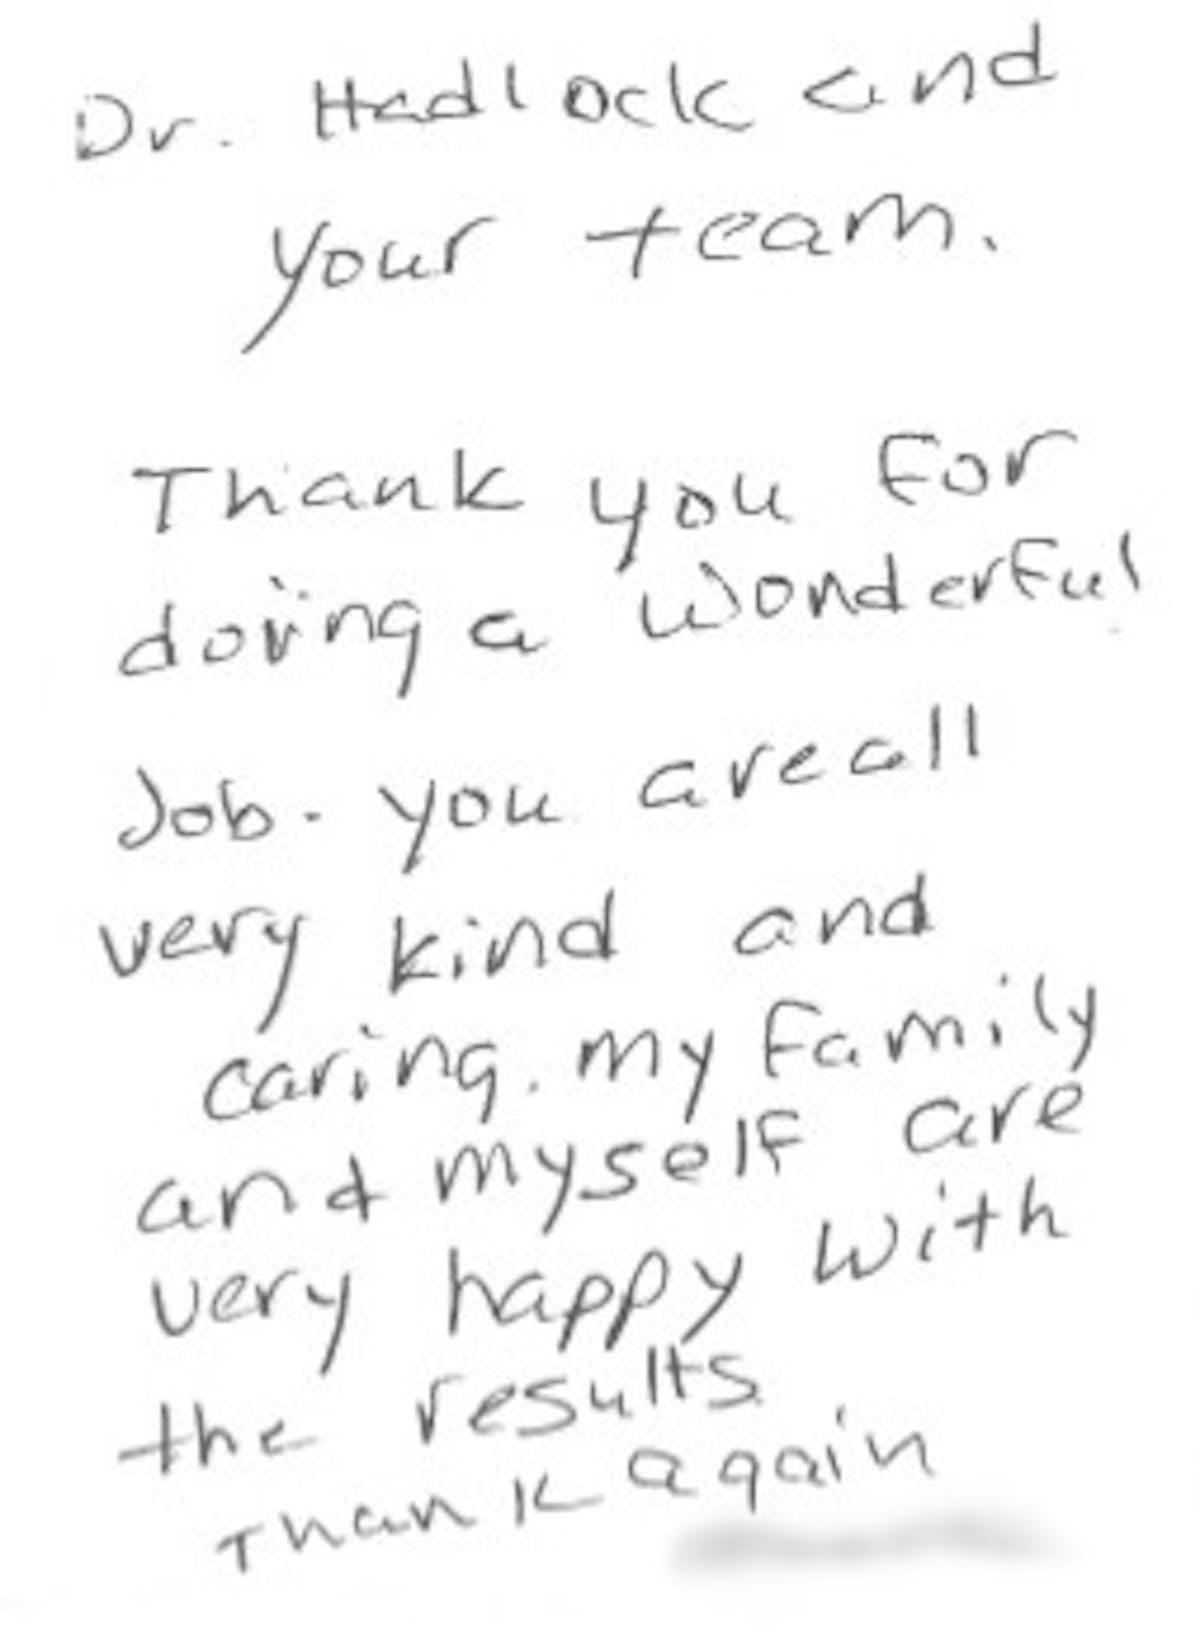 Dr. Hadlock and
your team.
Thank you for
doing a wonderful
Job. you are all
very kind and
caring. my family
and myself are
very happy with
the results
Thank again